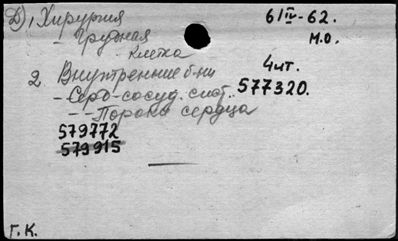 Д) 1 Хирургия
- Грудная
- клетка
6/IV-62.
М.О.
2. Внутренние б-ни
4 шт.
- Серд-сосуд. сист.
577320.
-- Порока сердца
579772
579915
Г.К.